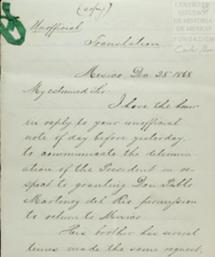 (copy)
Unofficial
Translation
Mexico, Dec. 28 1868
My esteemed Sir
I have the honor
in reply to your unofficial
note of day before yesterday,
to communicate the determin-
ation of the President in re-
spect to granting Don Pablo
Martinez del Rio permission
to return to Mexico
His brother has several
times made the same request,
CENTRO DE
ESTUDIOS
DE HISTORIA
DE MEXICO
FUNDACIÓN